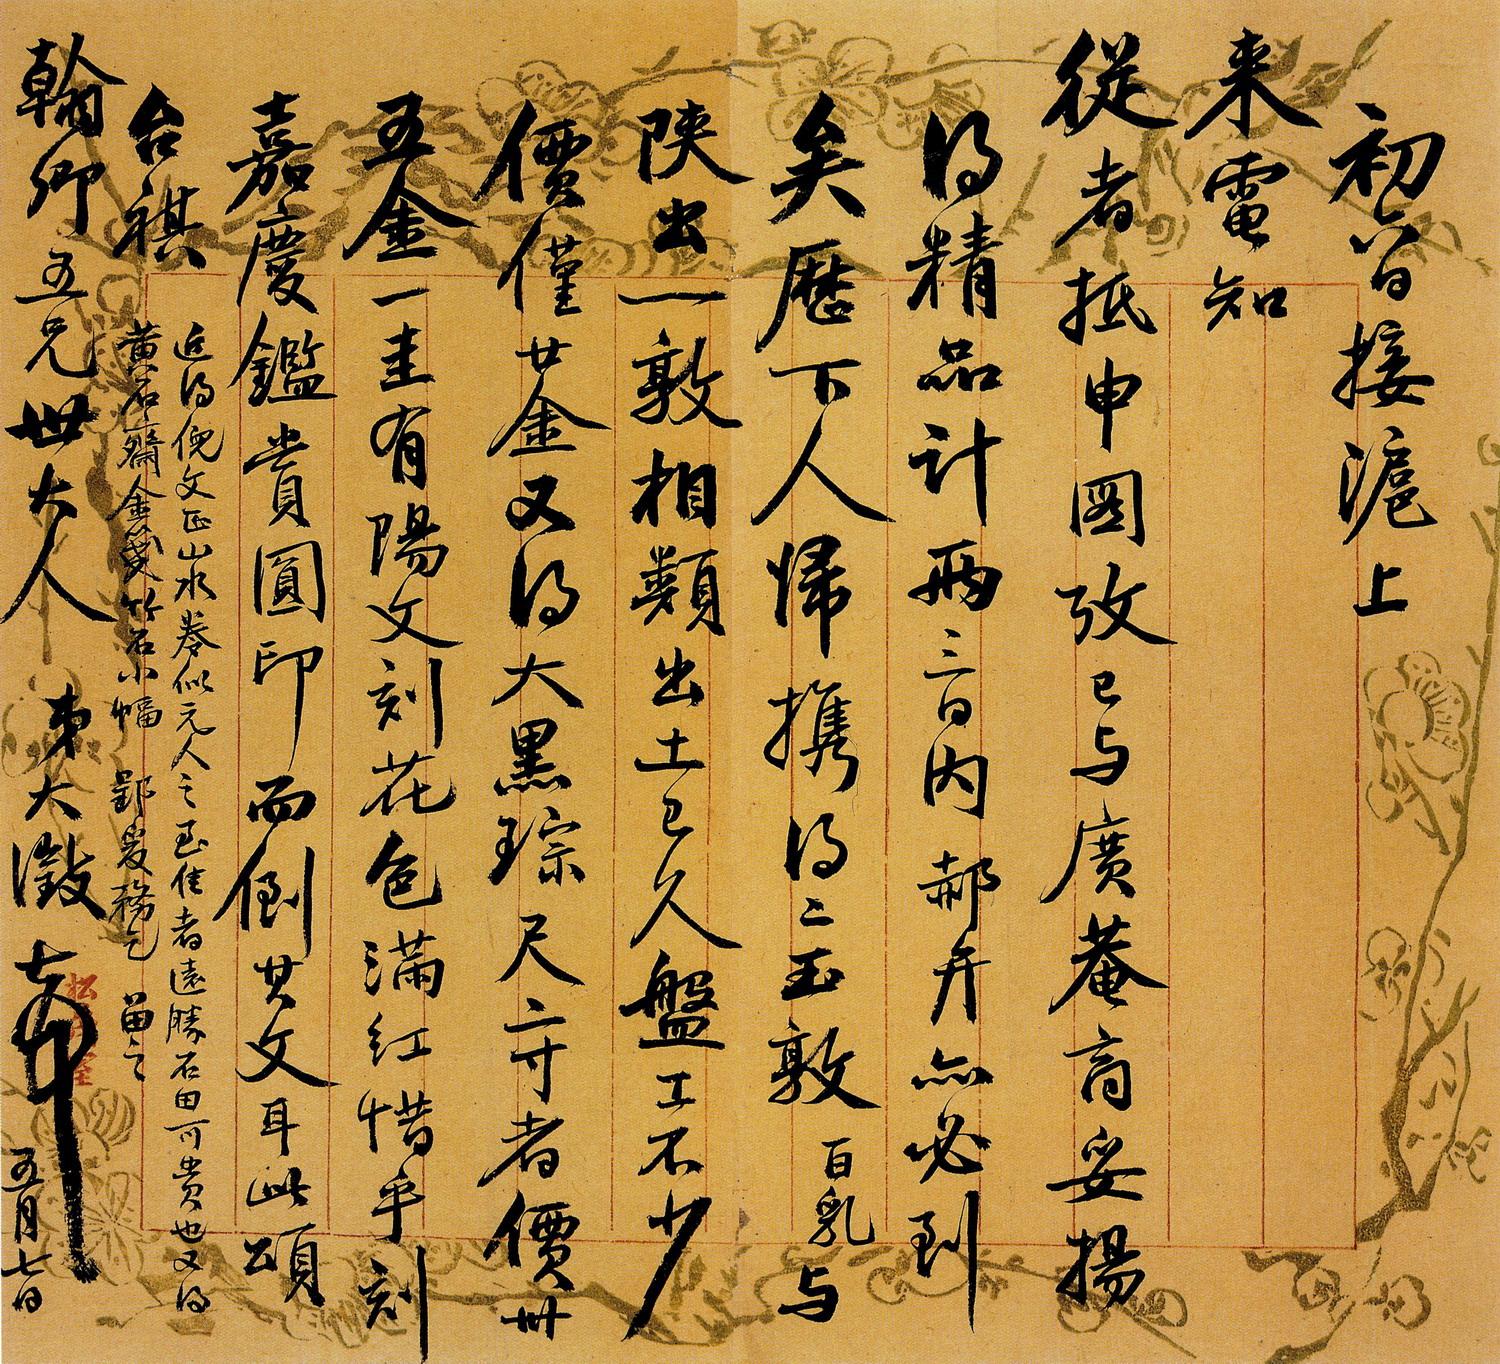 初六日接滬上
来電知
從者抵申圖攷已与廣菴商妥揚
得精品計兩三日内郝弁亦必到
矣歷下人歸携得二玉敦百乳与
陝出一敦相類出土已久盤工不少
價僅廿金又得大黑琮尺二寸者價卅
五金一圭有陽文刻花色滿紅惜乎刻
嘉慶鑑賞圓印而倒其文耳此頌
台祺
近得倪文正山水卷似元人之至佳者遠勝石田可貴也又得
黃石齋金箋竹石小幅 鄞爰務乞留之
翰卿五兄世大人 弟大澂 頓 五月七日